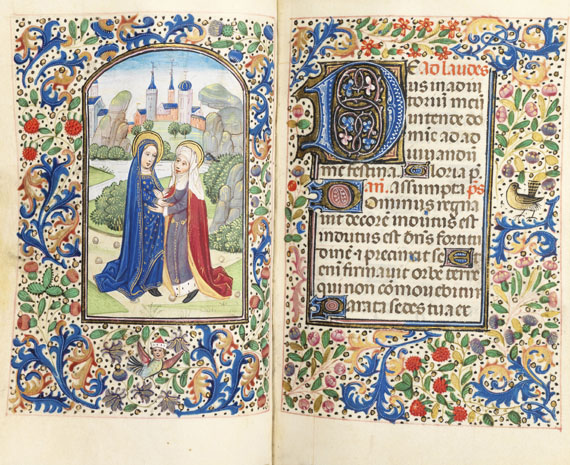 De Ad laudes
us in adiu
toriū meū
intende do
mine ad ad
iuuandū
me festina. Gloria p̄
añ. Assumpta. p̄s
Dominus regna
uit decorē indutus est
indutus est dn̄s fortitu
dinē ⁊ precinxit se Et
eni firmauit orbē terre
qui non cōmouebitur
Parata sedes tua ex